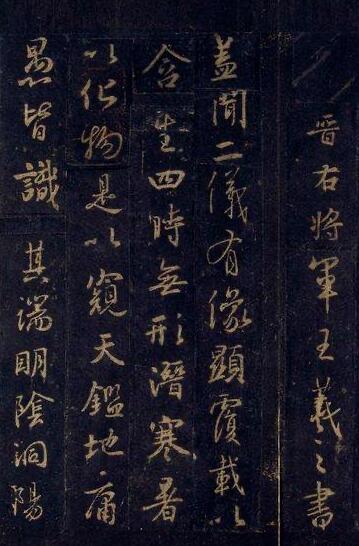 晋右將軍王羲之書
蓋聞二儀有像顯覆載以
含生四時無形潛寒暑
以化物是以窺天鑑地庸
愚皆識其端明陰洞陽